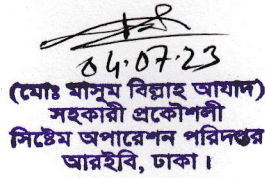 04.07.23
(মোঃ মাসুম বিল্লাহ আযাদ)
সহকারী প্রকৌশলী
সিষ্টেম অপারেশন পরিদপ্তর
আরইবি, ঢাকা।